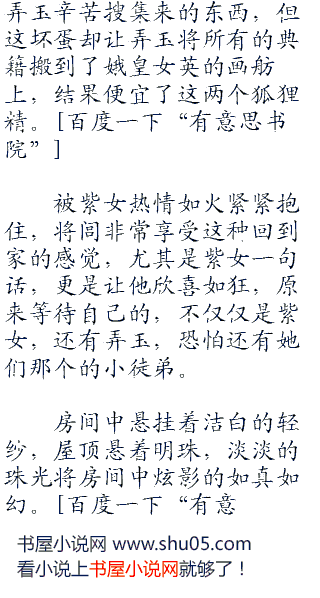 弄玉辛苦搜集来的东西，但
这坏蛋却让弄玉将所有的典
籍搬到了娥皇女英的画舫
上，结果便宜了这两个狐狸
精。[百度一下“有意思书
院”]
被紫女热情如火紧紧抱
住，将闾非常享受这种回到
家的感觉，尤其是紫女一句
话，更是让他欣喜如狂，原
来等待自己的，不仅仅是紫
女，还有弄玉，恐怕还有她
们那个的小徒弟。
房间中悬挂着洁白的轻
纱，屋顶悬着明珠，淡淡的
珠光将房间中炫影的如真如
幻。[百度一下“有意
书屋小说网 www.shu05.com
看小说上书屋小说网就够了！